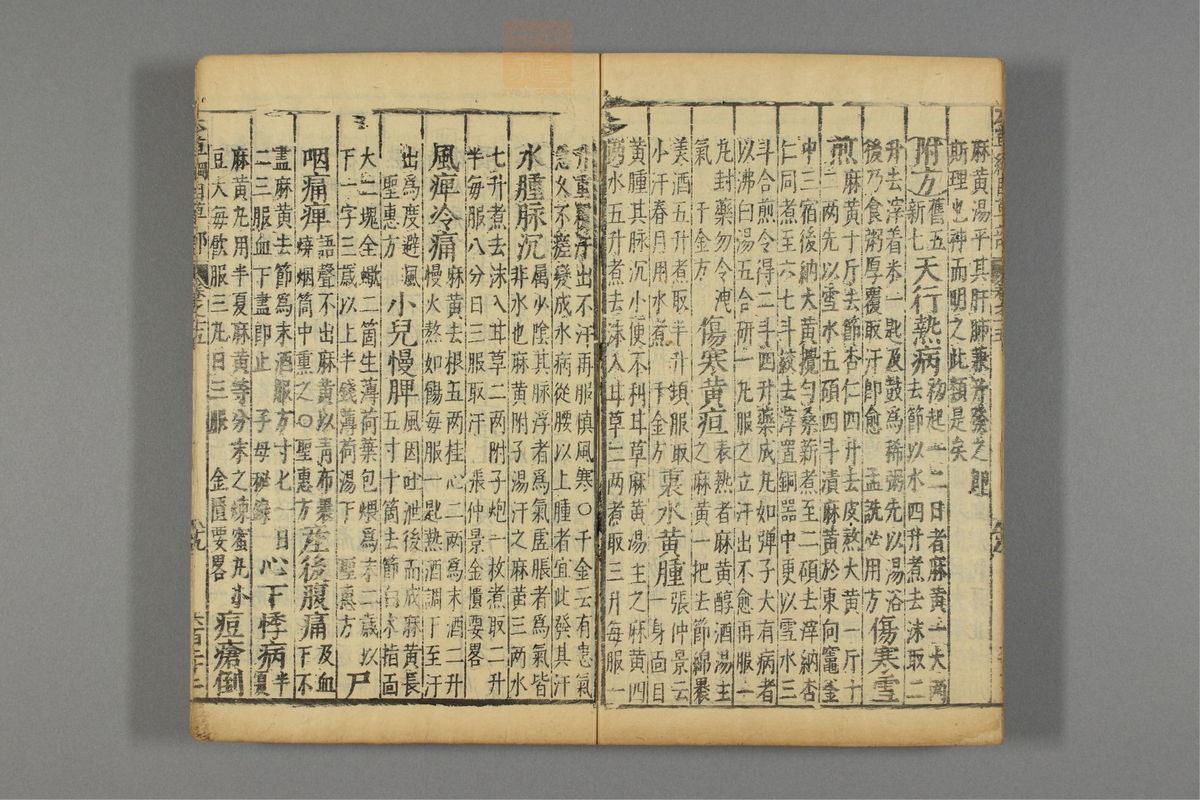 麻黃湯平其肝肺兼升發之即
斯理也神而明之此類是矣
附方舊五新七
天行熱病
初起一二日者麻黃一大兩
去節以水四升煮去沫取二
升去滓着米一匙及鼓為稀粥先以湯浴
後乃食粥厚覆取汗即愈 孟詵必用方
傷寒雪
煎
麻黃十斤去節杏仁四升去皮熬大黃一斤十
二兩先以雪水五碩四斗漬麻黃於東向竈釜
中三宿後納大黃攪勻桑薪煮至二碩去滓納杏
仁同煮至六七斗絞去滓置銅器中更以雪水三
斗合煎令得二斗四升藥成丸如彈子大有病者
以沸白湯五合研一丸服之立汗出不愈再服一
丸封藥勿令洩
氣 千金方
傷寒黃疸
表熱者麻黃醇酒湯主
之麻黃一把去節綿裹
美酒五升煮取半升頓服取
小汗春月用水煮 千金方
裏水黃腫
張仲景云
一身面目
黃腫其脉沉小便不利甘草麻黃湯主之麻黃四
兩水五升煮去沫入甘草二兩煮取三升每服一
升重覆汗出不汗再服慎風寒○千金云有患氣
急久不瘥變成水病從腰以上腫者宜此發其汗
水腫脉沉
屬少陰其脉浮者爲氣虛脹者爲氣皆
非水也麻黃附子湯汗之麻黃三兩水
七升煮去沫入甘草二兩附子炮一枚煮取二升
半每服八分日三服取汗 張仲景金匱要畧
風痺冷痛
麻黃去根五兩桂心二兩爲末酒二升
慢火熬如餳每服一匙熱酒調下至汗
出爲度避風
聖惠方
小兒慢脾
風因吐泄後而成麻黃長
五寸十箇去節白朮指面
大二塊全蠍二箇生薄荷葉包煨爲末二歲以
下一字三歲以上半錢薄荷湯下 聖惠方
尸
咽痛痺
語聲不出麻黃以青布裹
燒烟筒中熏之○聖惠方
產後腹痛
及血
下不
盡麻黃去節爲末酒服方寸匕一日
二三服血下盡即止 子母秘錄
心下悸病
半
夏
麻黃丸用半夏麻黃等分末之煉蜜丸小
豆大每飲服三丸日三服 金匱要畧
痘瘡倒